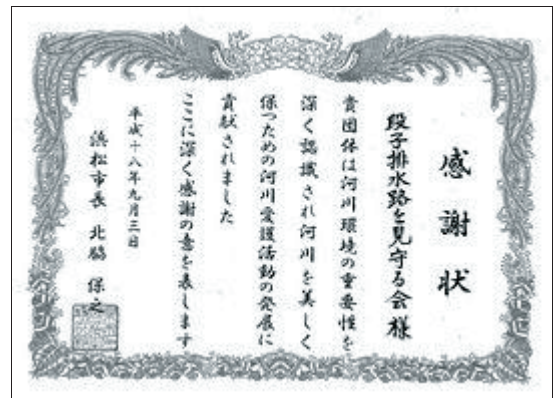 感謝状
段子排水路を見守る会様
貴団体は河川環境の重要性を
深く認識され河川を美しく
保つための河川愛護活動の発展に
貢献されました
ここに深く感謝の意を表します
平成十八年九月三日
浜松市長 北脇 保之